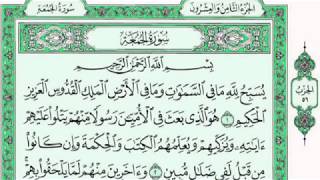 الجزء الثامن والعشرون
سورة الجمعة
سورة الجمعة
بسم الله الرحمن الرحيم
يُسَبِّحُ لِلَّهِ مَا فِي السَّمَٰوَٰتِ وَمَا فِي الْأَرْضِ الْمَلِكِ الْقُدُّوسِ الْعَزِيزِ
الْحَكِيمِ ١ هُوَ الَّذِي بَعَثَ فِي الْأُمِّيِّينَ رَسُولًا مِّنْهُمْ يَتْلُوا عَلَيْهِمْ
ءَايَٰتِهِ وَيُزَكِّيهِمْ وَيُعَلِّمُهُمُ الْكِتَٰبَ وَالْحِكْمَةَ وَإِن كَانُوا
مِن قَبْلُ لَفِي ضَلَٰلٍ مُّبِينٍ ٢ وَءَاخَرِينَ مِنْهُمْ لَمَّا يَلْحَقُوا بِهِمْ
الحزب
٥٦